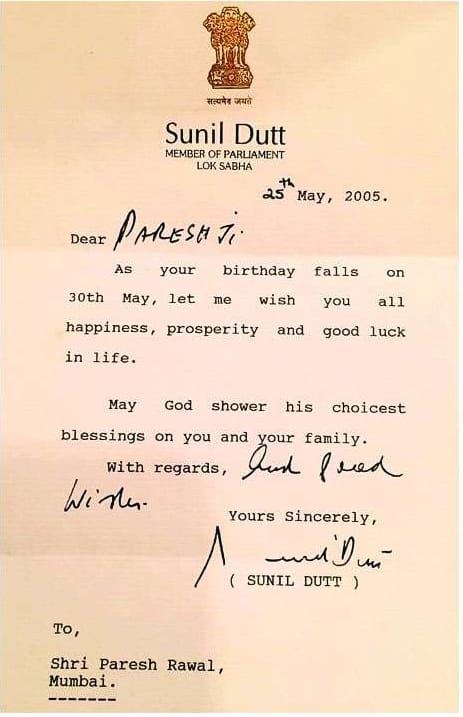 सत्यमेव जयते
Sunil Dutt
MEMBER OF PARLIAMENT
LOK SABHA
25th May, 2005.
Dear PARESH Ji
As your birthday falls on
30th May, let me wish you all
happiness, prosperity and good luck
in life.
May God shower his choicest
blessings on you and your family.
With regards, and good
Wishes.
Yours Sincerely,
Sunil Dutt
( SUNIL DUTT )
To,
Shri Paresh Rawal,
Mumbai.